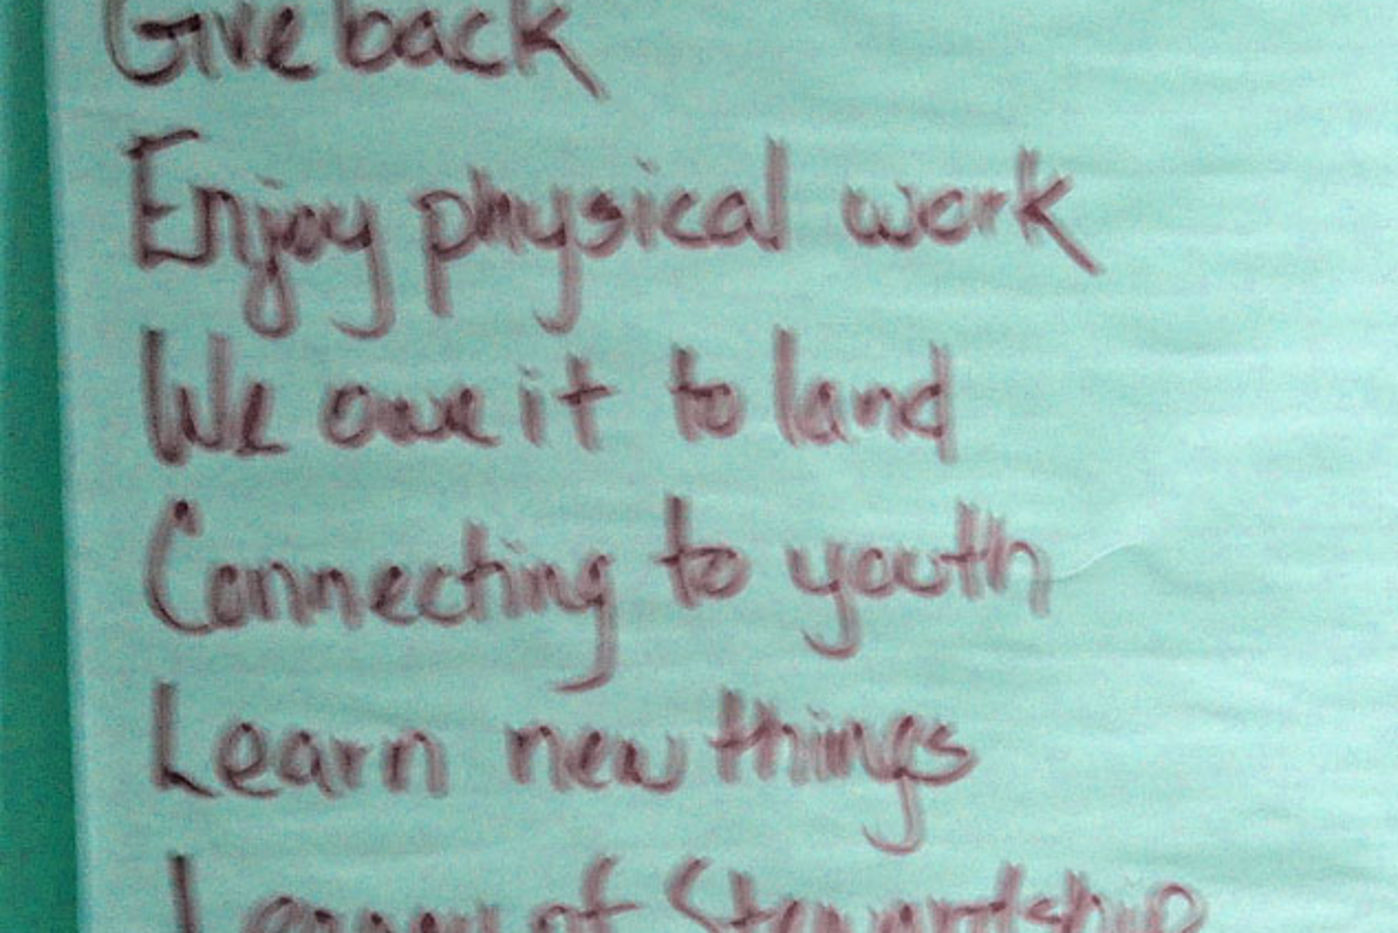 Give back
Enjoy physical work
We owe it to land
Connecting to youth
Learn new things
Legacy of Stewardship